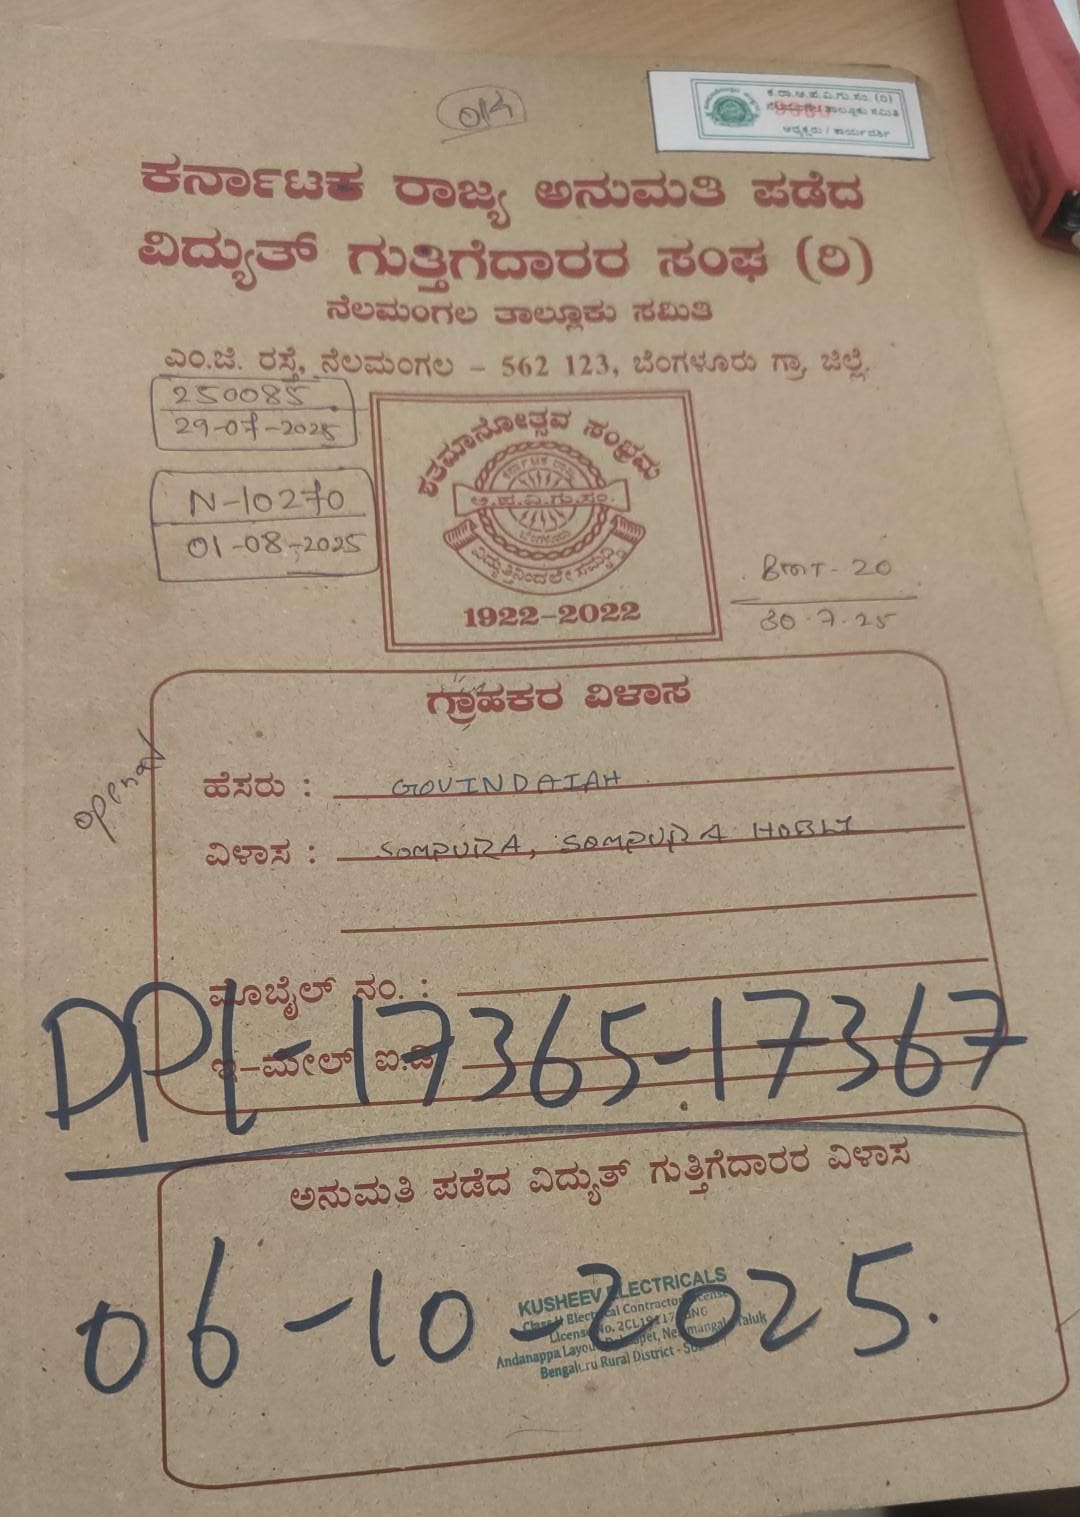 ಕ.ರಾ.ಅ.ಪ.ವಿ.ಗು.ಸಂ. (ರಿ)
ನೆಲಮಂಗಲ ತಾಲ್ಲೂಕು ಸಮಿತಿ
ಅಧ್ಯಕ್ಷರು / ಕಾರ್ಯದರ್ಶಿ
ಕರ್ನಾಟಕ ರಾಜ್ಯ ಅನುಮತಿ ಪಡೆದ
ವಿದ್ಯುತ್ ಗುತ್ತಿಗೆದಾರರ ಸಂಘ (ರಿ)
ನೆಲಮಂಗಲ ತಾಲ್ಲೂಕು ಸಮಿತಿ
ಎಂ.ಜಿ. ರಸ್ತೆ, ನೆಲಮಂಗಲ – 562 123, ಬೆಂಗಳೂರು ಗ್ರಾ. ಜಿಲ್ಲೆ.
250085
29-07-2025
N-10270
01-08-2025
ಶತಮಾನೋತ್ಸವ ಸಂಭ್ರಮ
ಕರ್ನಾಟಕ ರಾಜ್ಯ
ಅ.ಪ.ವಿ.ಗು.ಸಂ.
ಬೆಂಗಳೂರು
1922-2022
BMT-20
30.7.25
ಗ್ರಾಹಕರ ವಿಳಾಸ
ಹೆಸರು : GOVINDAIAH
ವಿಳಾಸ : SOMPURA, SOMPURA HOBLI
ಮೊಬೈಲ್ ನಂ. :
ಇ-ಮೇಲ್ ಐ.ಡಿ
DPL-17365-17367
ಅನುಮತಿ ಪಡೆದ ವಿದ್ಯುತ್ ಗುತ್ತಿಗೆದಾರರ ವಿಳಾಸ
06-10-2025.
KUSHEEV ELECTRICALS
Electrical Contractor License
License No.
Andanappa Layout Nelamangala Taluk
Bengaluru Rural District -